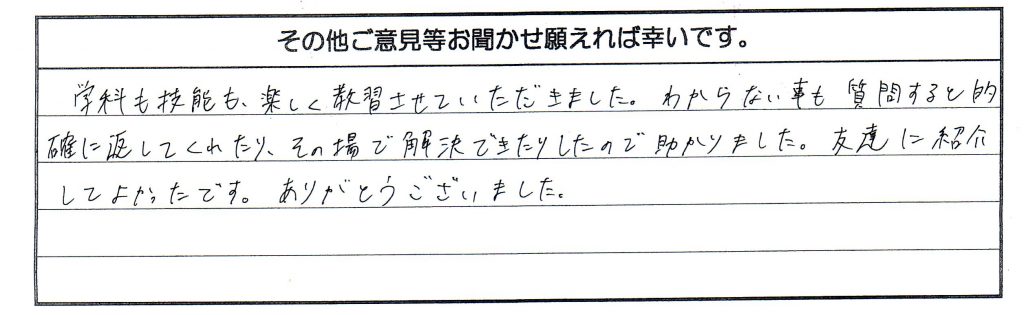 その他ご意見等お聞かせ願えれば幸いです。
学科も技能も、楽しく教習させていただきました。わからない事も質問すると的
確に返してくれたり、その場で解決できたりしたので助かりました。友達に紹介
してよかったです。ありがとうございました。